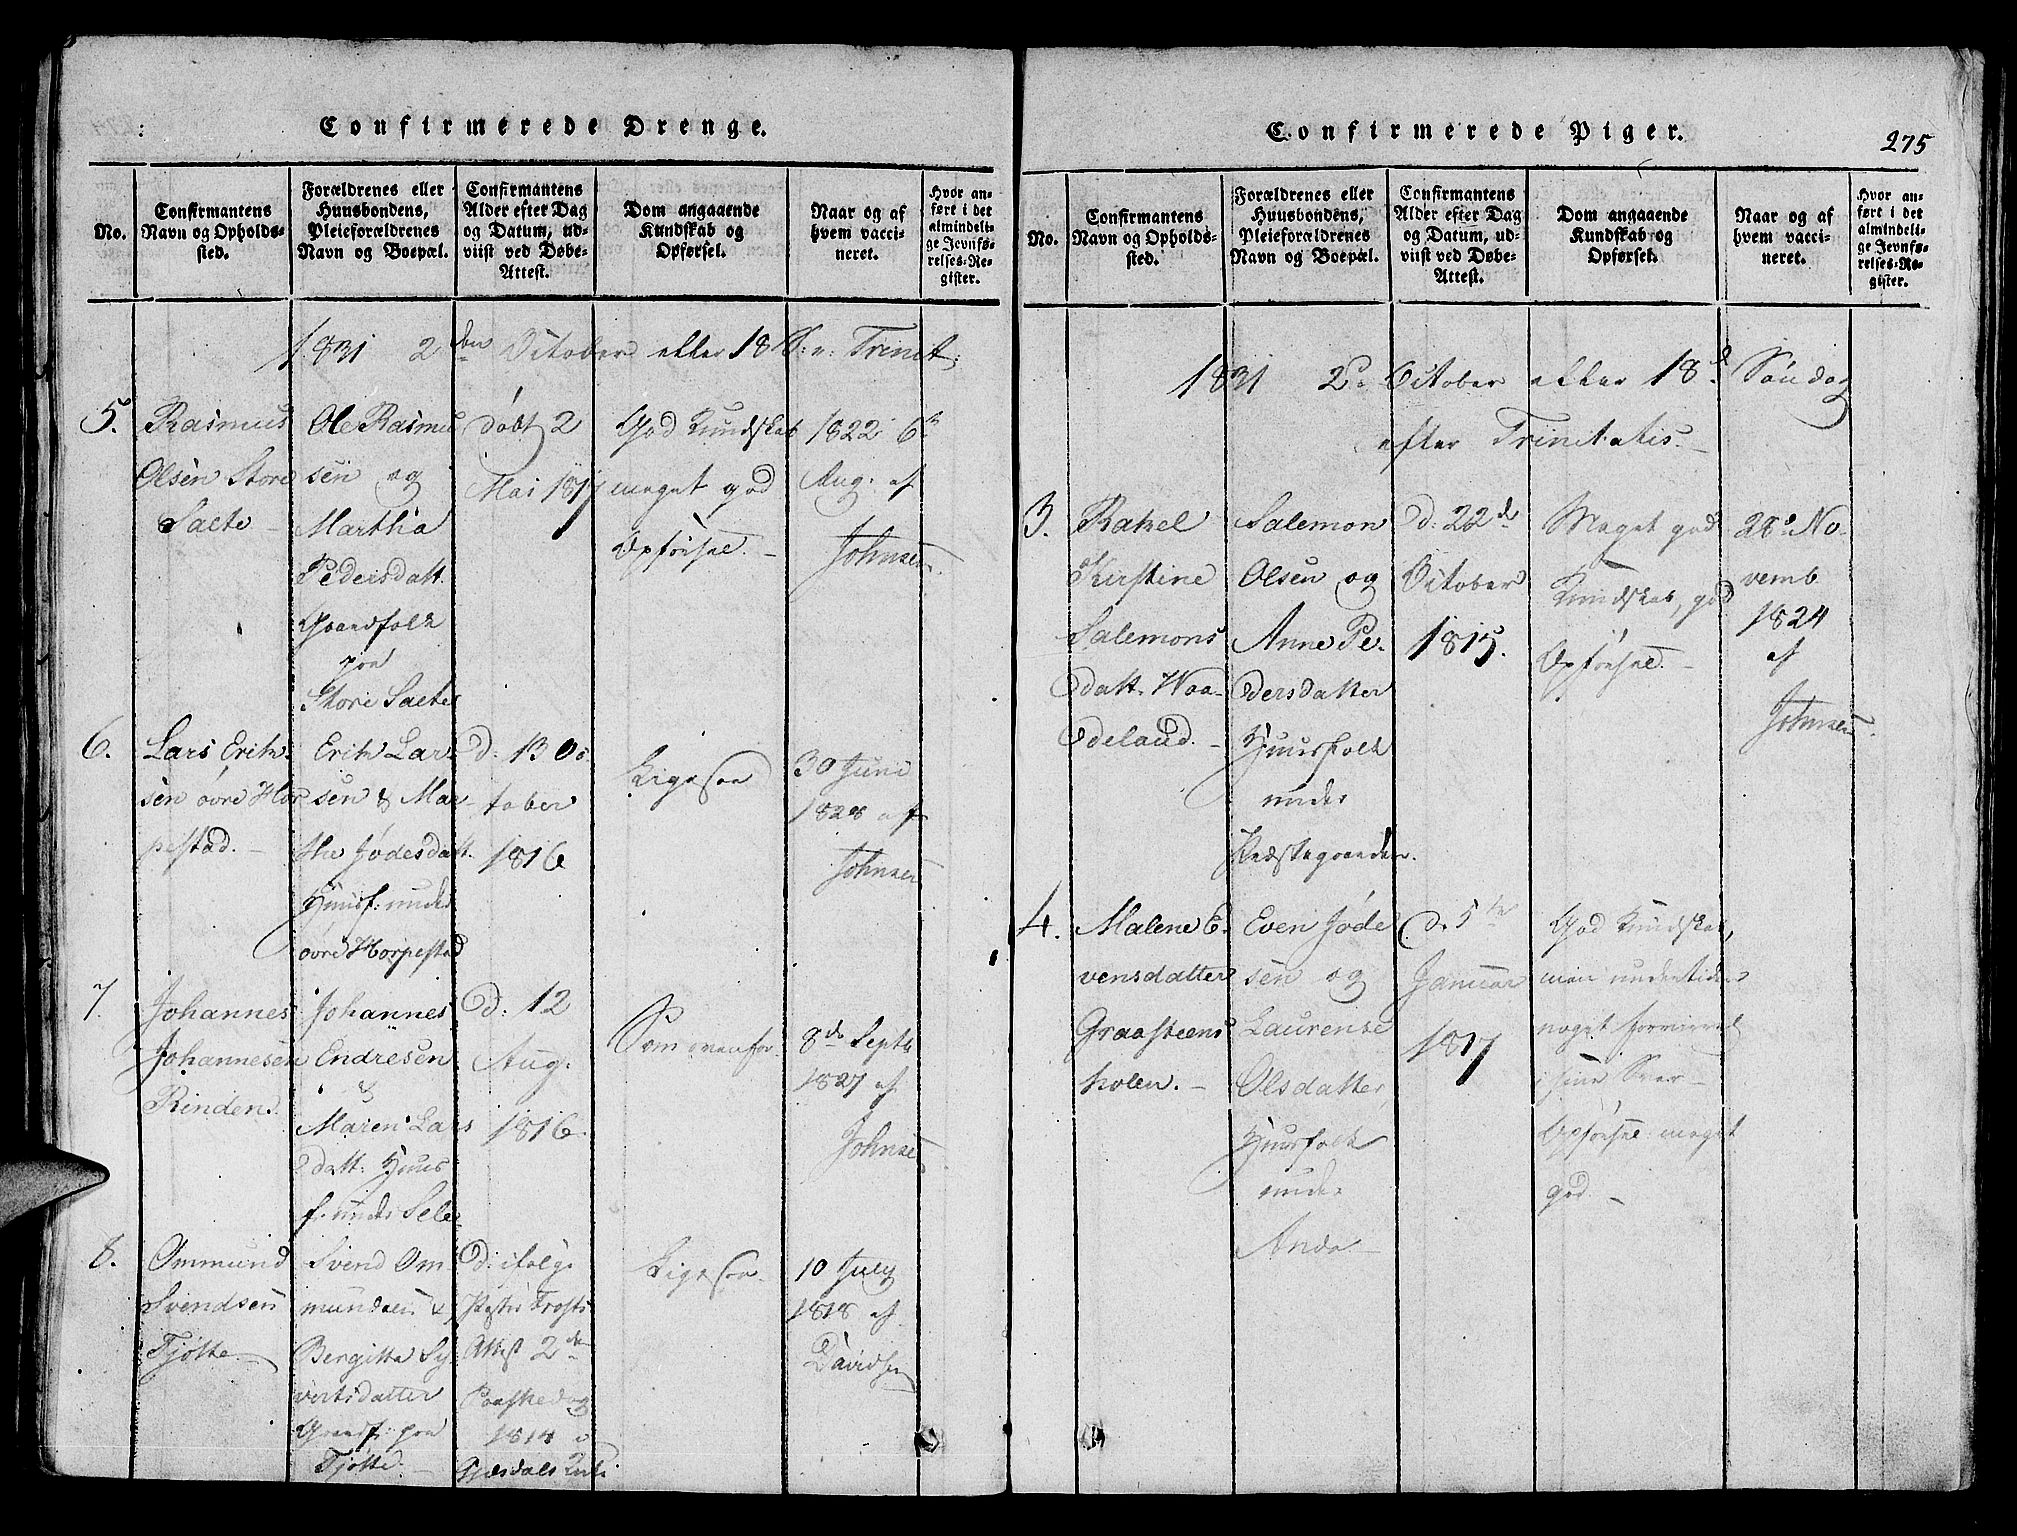 Confirmerede Drenge.
No.
Confirmantens
Navn og Opholds-
sted.
Forældrenes eller
Huusbondens,
Pleieforældrenes
Navn og Boepæl.
Confirmantens
Alder efter Dag
og Datum, ud-
viist ved Døbe-
Attest.
Dom angaaende
Kundskab og
Opførsel.
Naar og af
hvem vacci-
neret.
Hvor an-
ført i det
almindeli-
ge Jevnfø-
relses-Re-
gister.
1831 2den October efter 18 S: e: Trinit:
5.
Rasmus
Olsen Store
Saete
Ole Rasmu
sen og
Martha
Pedersdatt.
Gaardfolk
paa
Store Saete
døbt 2
Mai 1817
God Kundskab
meget god
Opførsel. -
1822 6te
Aug: af
Johnsen
6.
Lars Erik-
sen øvre Hor
pestad. -
Erik Lar-
sen & Mar-
the Jødesdatt.
Huusf: under
øvre Horpestad
D: 13 Oc
tober
1816
Ligesaa
30 Juni
1828 af
Johnsen
7.
Johannes
Johannesen
Rinden.
Johannes
Endresen
&
Maren Lars
datt: Huus
f: under Sele
D: 12
Aug:
1816.
Som ovenfor
8de Septb
1827 af
Johnsen
8.
Ommund
Svendsen
Tjøtte. -
Svend Om
mundsen &
Bergitta Sy-
vertsdatter
Gaardf: paa
Tjøtte. -
D: ifølge
Præsten Trosts
Attest 2den
Paaskedag
1814 i
Gjesdals
Ligesaa.
10 July
1818 af
Davidsen
Confirmerede Piger.
275
No.
Confirmantens
Navn og Opholds-
sted.
Forældrenes eller
Huusbondens,
Pleieforældrenes
Navn og Boepæl.
Confirmantens
Alder efter Dag
og Datum, ud-
viist ved Døbe-
Attest.
Dom angaaende
Kundskab og
Opførsel.
Naar og af
hvem vacci-
neret.
Hvor an-
ført i det
almindeli-
ge Jevnfø-
relses-Re-
gister.
1831 2de October efter 18d Søndag
efter Trinitatis. -
3.
Rakel
Kirstine
Salemons
datt. Waa-
deland. -
Salemon
Olsen og
Anne Pe-
dersdatter
Huusfolk
under
Præstegaarden.
D: 22de
October
1815.
Meget god
Kundskab, god
Opførsel. -
28de No-
vemb
1824
af
Johnsen
4.
Malene E-
vensdatter
Graasteens
holen. -
Even Jøde
sen og
Laurense
Olsdatter,
Huusfolk
under
Anda -
D. 5te
Januar
1817
God Kundskab,
men undertiden
noget forvirret
i sine Svar -
Opførsel: meget
god -